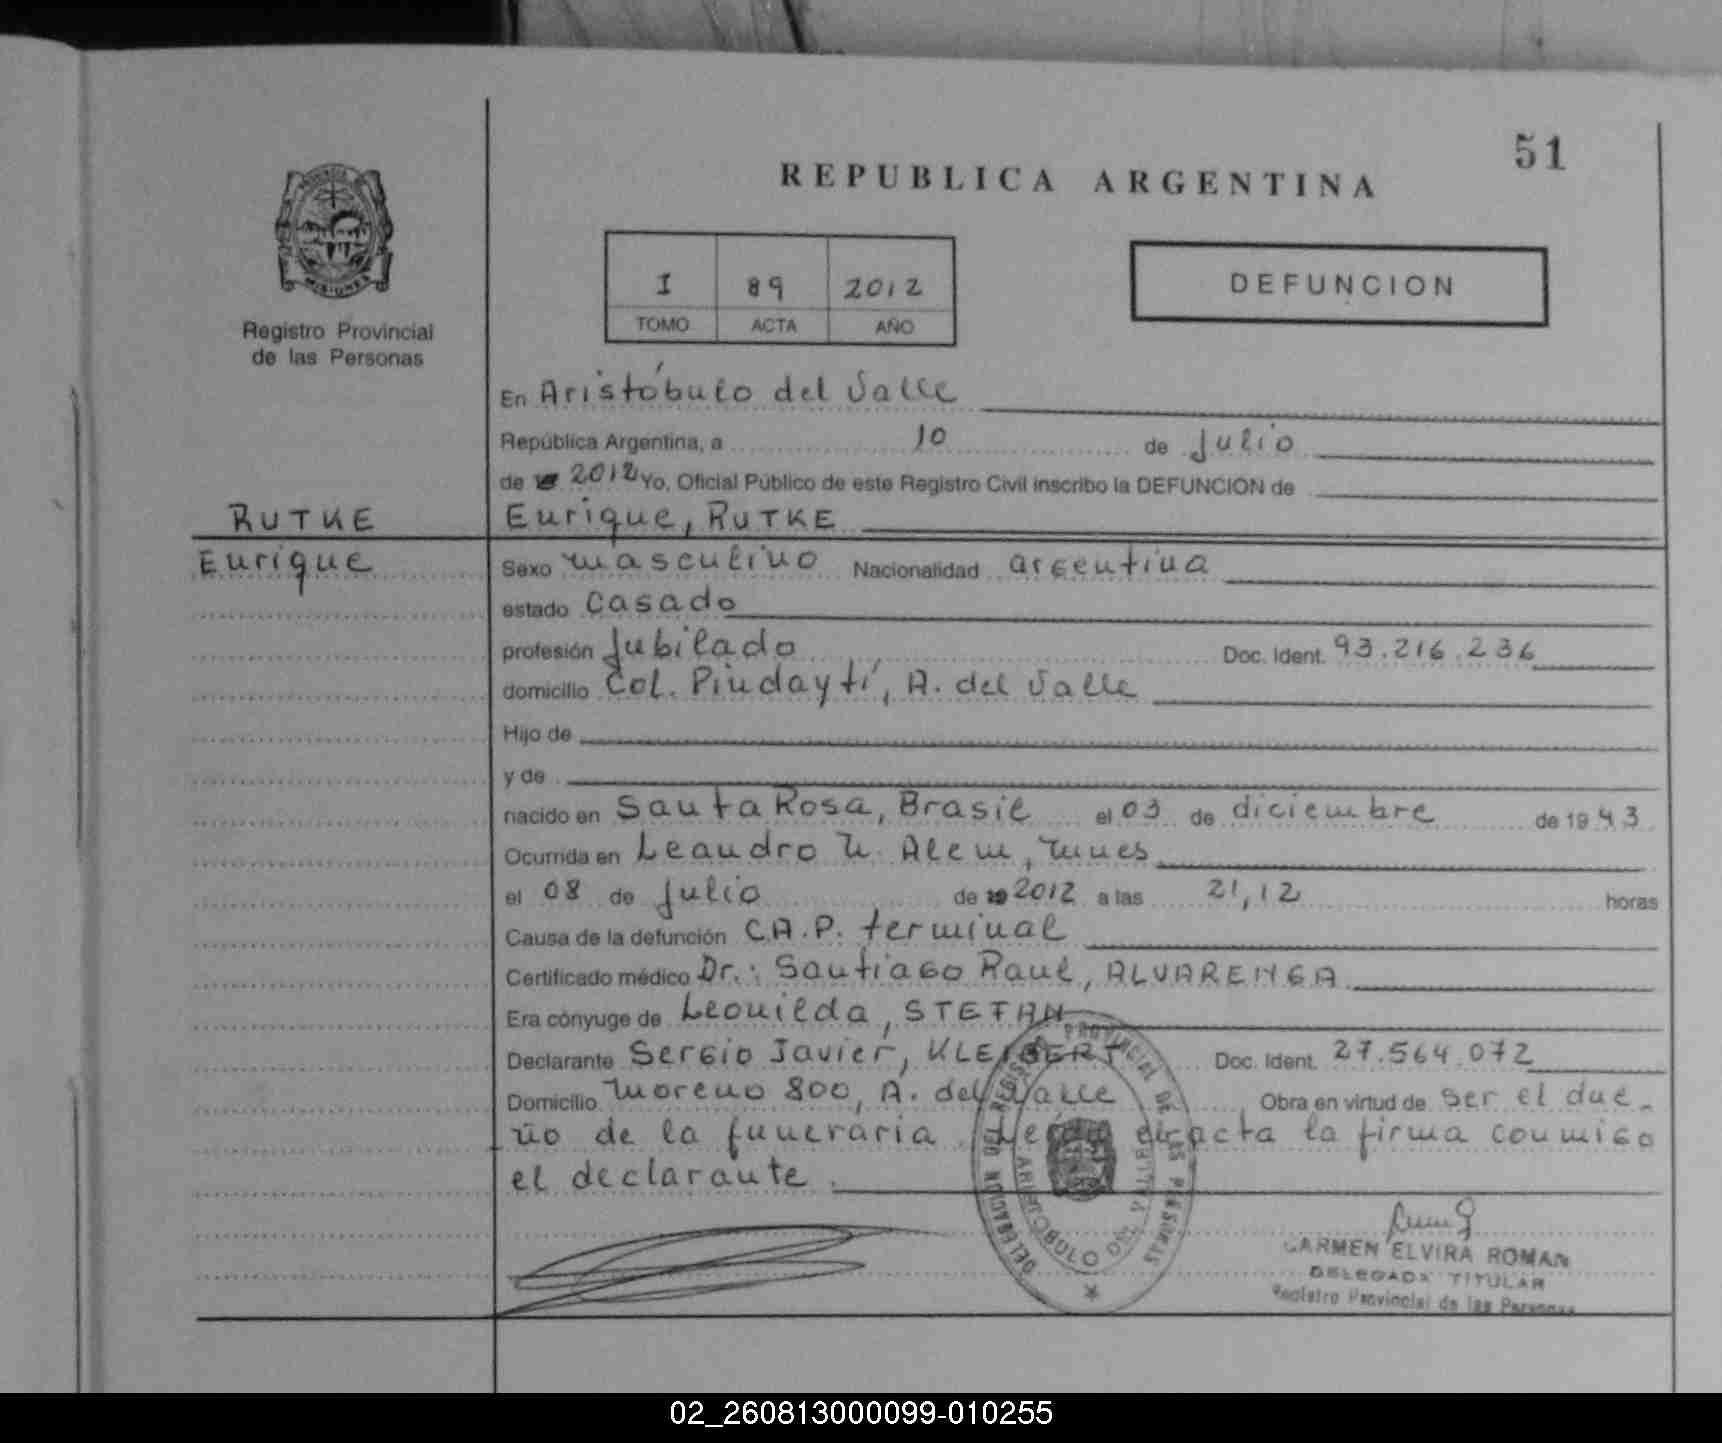 51
REPUBLICA ARGENTINA
PROVINCIA
MISIONES
Registro Provincial
de las Personas
I 89 2012
TOMO ACTA AÑO
DEFUNCION
En Aristóbulo del Valle
República Argentina, a 10 de Julio
de 2012 Yo, Oficial Público de este Registro Civil inscribo la DEFUNCION de
RUTKE Enrique, RUTKE
Enrique Sexo masculino Nacionalidad argentina
estado casado
profesión Jubilado Doc. Ident. 93.216.236
domicilio Col. Pindaytí, A. del Valle
Hijo de
y de
nacido en Santa Rosa, Brasil el 03 de diciembre de 1943
Ocurrida en Leandro N. Alem, Mnes
el 08 de Julio de 2012 a las 21,12 horas
Causa de la defunción C.A.P. terminal
Certificado médico Dr.: Santiago Raul, ALVARENGA
Era cónyuge de Leonilda, STEFAN
Declarante Sergio Javier, KLEIBERT Doc. Ident. 27.564.072
Domicilio Moreno 800, A. del Valle Obra en virtud de ser el due-
ño de la funeraria. Leída el acta la firma conmigo
el declarante.
DELEGACION DEL REGISTRO PROVINCIAL DE LAS PERSONAS
ARISTOBULO DEL VALLE
CARMEN ELVIRA ROMAN
DELEGADA TITULAR
Registro Provincial de las Personas
02_260813000099-010255